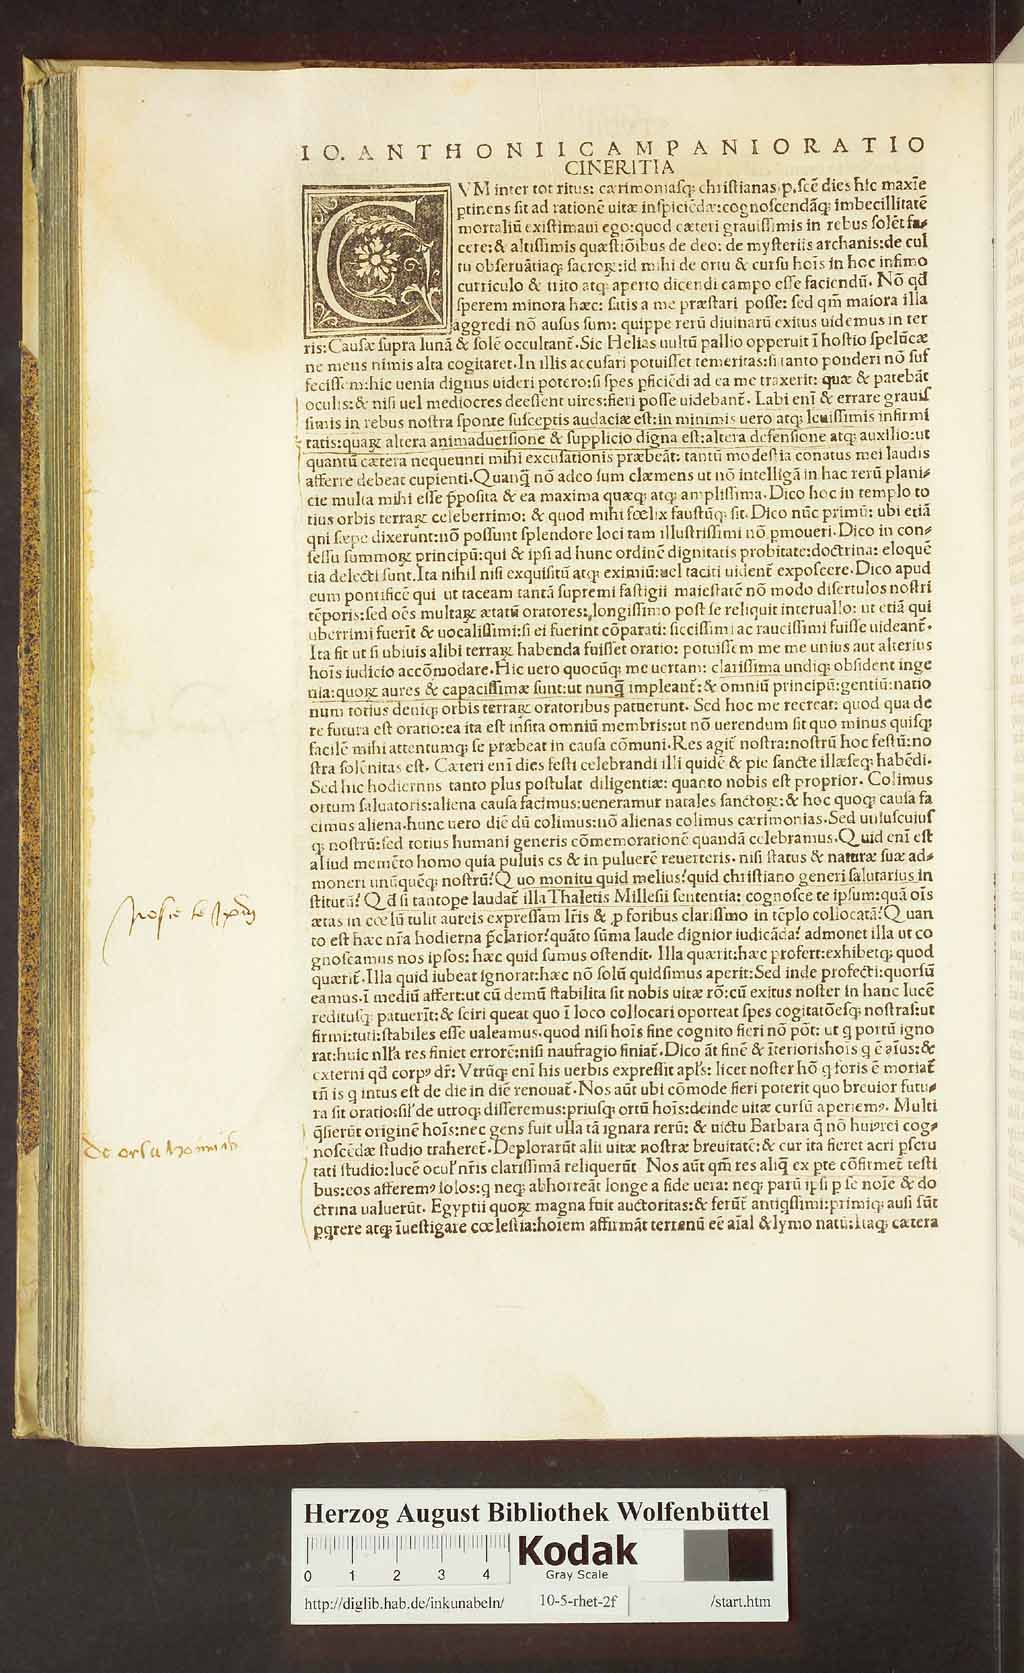 IO. ANTHONII CAMPANI ORATIO
CINERITIA
CVM inter tot ritus: cærimoniasq; christianas .p. scē dies hic maxīe
ptinens sit ad rationē uitæ inspiciēdæ: cognoscendāq; imbecillitatē
mortaliū existimaui ego: quod cæteri grauissimis in rebus solēt fa-
cere: & altissimis quæstiōibus de deo: de mysteriis archanis: de cul
tu obseruātiaq; sacroꝝ: id mihi de ortu & cursu hoīs in hoc infimo
curriculo & trito atq; aperto dicendi campo esse faciendū. Nō qđ
sperem minora hæc: satis a me præstari posse: sed qm̄ maiora illa
aggredi nō ausus sum: quippe rerū diuinarū exitus uidemus in ter
ris: Causæ supra lunā & solē occultant̄. Sic Helias uultū pallio opperuit ī hostio spelūcæ
ne mens nimis alta cogitaret. In illis accusari potuisset temeritas: si tanto ponderi nō suf
fecissem: hic uenia dignus uideri potero: si spes ꝓficiēdi ad ea me traxerit: quæ & patebāt
oculis: & nisi uel mediocres deessent uires: fieri posse uidebant̄. Labi enī & errare grauis
simis in rebus nostra sponte susceptis audaciæ est: in minimis uero atq; leuissimis infirmi
tatis: quaꝝ altera animaduersione & supplicio digna est: altera defensione atq; auxilio: ut
quantū cætera nequeunti mihi excusationis præbeāt: tantū modestia conatus mei laudis
afferre debeat cupienti. Quanq̄ nō adeo sum clæmens ut nō intelligā in hac rerū plani-
cie multa mihi esse p̄posita & ea maxima quæq; atq; amplissima. Dico hoc in templo to
tius orbis terraꝝ celeberrimo: & quod mihi fœlix faustūq; sit. Dico nūc primū: ubi etiā
qni sæpe dixerunt: nō possunt splendore loci tam illustrissimi nō ꝑmoueri. Dico in con-
sessu summoꝝ principū: qui & ipsi ad hunc ordinē dignitatis probitate: doctrina: eloquē
tia delecti sunt. Ita nihil nisi exquisitū atq; eximiū: uel taciti uident̄ exposcere. Dico apud
eum pontificē qui ut taceam tantā supremi fastigii maiestatē nō modo disertulos nostri
tēporis: sed oēs multaꝝ ætatū oratores: longissimo post se reliquit interuallo: ut etiā qui
uberrimi fuerīt & uocalissimi: si ei fuerint cōparati: siccissimi ac raucissimi fuisse uideant̄.
Ita fit ut si ubiuis alibi terraꝝ habenda fuisset oratio: potuissem me me unius aut alterius
hoīs iudicio accōmodare. Hic uero quocūq; me uertam: clarissima undiq; obsident inge
nia: quoꝝ aures & capacissimæ sunt: ut nunq̄ impleant̄: & omniū principū: gentiū: natio
num totius deniq; orbis terraꝝ oratoribus patuerunt. Sed hoc me recreat: quod qua de
re futura est oratio: ea ita est insita omniū membris: ut nō uerendum sit quo minus quisq;
facilē mihi attentumq; se præbeat in causa cōmuni. Res agit̄ nostra: nostrū hoc festū: no
stra solēnitas est. Cæteri enī dies festi celebrandi illi quidē & pie sancte illæseq; habēdi.
Sed hic hodiernns tanto plus postulat diligentiæ: quanto nobis est proprior. Colimus
ortum saluatoris: aliena causa facimus: ueneramur natales sanctoꝝ: & hoc quoq; causa fa
cimus aliena. hunc uero diē dū colimus: nō alienas colimus cærimonias. Sed uniuscuius
q; nostrū: sed totius humani generis cōmemorationē quandā celebramus. Quid enī est
aliud memēto homo quia puluis es & in puluerē reuerteris. nisi status & naturæ suæ ad-
moneri unūquēq; nostrū? Quo monitu quid melius? quid christiano generi salutarius in
stitutū? Qđ si tantope laudat̄ illa Thaletis Millesii sententia: cognosce te ipsum: quā oīs
ætas in cœlū tulit aureis expressam lr̄is & ꝓ foribus clarissimo in tēplo collocatā? Quan
to est hæc nr̄a hodierna p̄clarior? quāto sūma laude dignior iudicāda? admonet illa ut co
gnoscamus nos ipsos: hæc quid sumus ostendit. Illa quærit: hæc profert: exhibetq; quod
quærit̄. Illa quid iubeat ignorat: hæc nō solū quid simus aperit: Sed inde profecti: quorsū
eamus. ī mediū affert: ut cū demū stabilita sit nobis uitæ rō: cū exitus noster in hanc lucē
reditusq; patuerīt: & sciri queat quo ī loco collocari oporteat spes cogitatōesq; nostras: ut
firmi: tuti: stabiles esse ualeamus. quod nisi hoīs fine cognito fieri nō pōt: ut q portū igno
rat: huic nlľa res finiet errorē: nisi naufragio finiat̄. Dico āt finē & īterioris hoīs q ē aīus: &
externi qđ corpꝰ dr̄: Vtrūq; enī his uerbis expressit apľs: licet noster hō q foris ē moriat̄
tn̄ is q intus est de die in diē renouat̄. Nos aūt ubi cōmode fieri poterit quo breuior futu-
ra sit oratio: siľ de utroq; disseremus: priusq; ortū hoīs: deinde uitæ cursū aperiemꝰ. Multi
q̄sierūt originē hoīs: nec gens fuit ulla tā ignara rerū: & uictu Barbara q̄ nō huiꝰ rei cog-
noscēdæ studio traheret̄. Deplorarūt alii uitæ nostræ breuitatē: & cur ita fieret acri ꝑscru
tati studio: lucē ocuľ nr̄is clarissimā reliquerūt Nos aūt qm̄ res aliq̄ ex pte cōfirmet̄ testi
bus: eos afferemꝰ solos: q neq; abhorreāt longe a fide uera: neq; parū ip̄si p se noīe & do
ctrina ualuerūt. Egyptii quoꝝ magna fuit auctoritas: & ferūt̄ antiqssimi: primiq; ausi sūt
ꝑqrere atq; īuestigare cœlestia: hoīem affirmāt terrenū eē aīal & lymo natū: Itaq; cætera
nosce te ipsū
De ortu hominis
Herzog August Bibliothek Wolfenbüttel
0 1 2 3 4
Kodak
Gray Scale
http://diglib.hab.de/inkunabeln/ 10-5-rhet-2f /start.htm